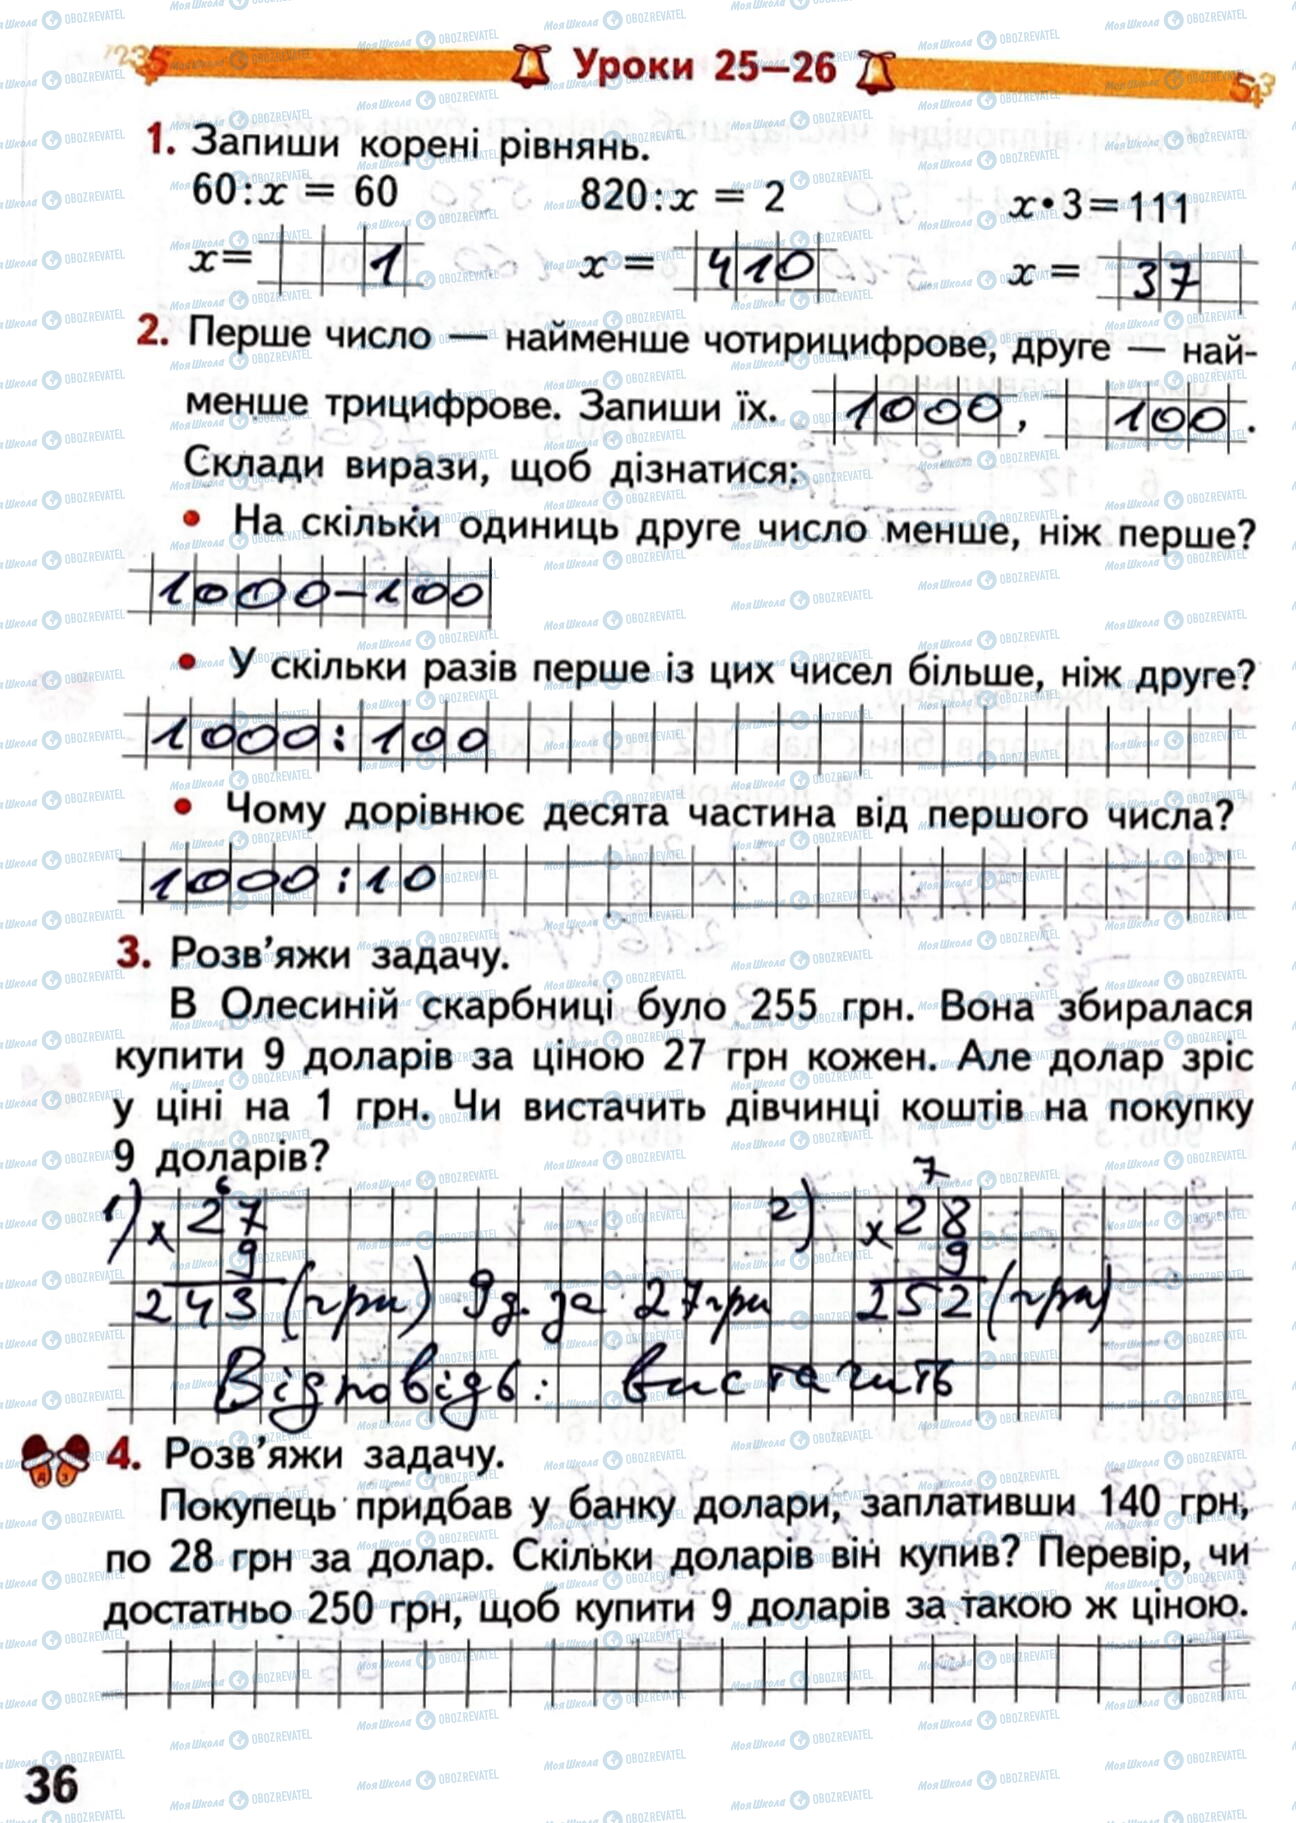 Уроки 25—26
1. Запиши корені рівнянь.
60:x = 60 820:x = 2 x•3=111
x= 1 x = 410 x = 37
2. Перше число — найменше чотирицифрове, друге — най-
менше трицифрове. Запиши їх. 1000, 100.
Склади вирази, щоб дізнатися:
• На скільки одиниць друге число менше, ніж перше?
1000-100
• У скільки разів перше із цих чисел більше, ніж друге?
1000:100
• Чому дорівнює десята частина від першого числа?
1000:10
3. Розв'яжи задачу.
В Олесиній скарбниці було 255 грн. Вона збиралася
купити 9 доларів за ціною 27 грн кожен. Але долар зріс
у ціні на 1 грн. Чи вистачить дівчинці коштів на покупку
9 доларів?
6 7
1) x 27 2) x 28
9 9
243 (грн) 9 д. за 27 грн 252 (грн)
Відповідь: вистачить
4. Розв'яжи задачу.
Покупець придбав у банку долари, заплативши 140 грн,
по 28 грн за долар. Скільки доларів він купив? Перевір, чи
достатньо 250 грн, щоб купити 9 доларів за такою ж ціною.
36
Моя Школа OBOZREVATEL